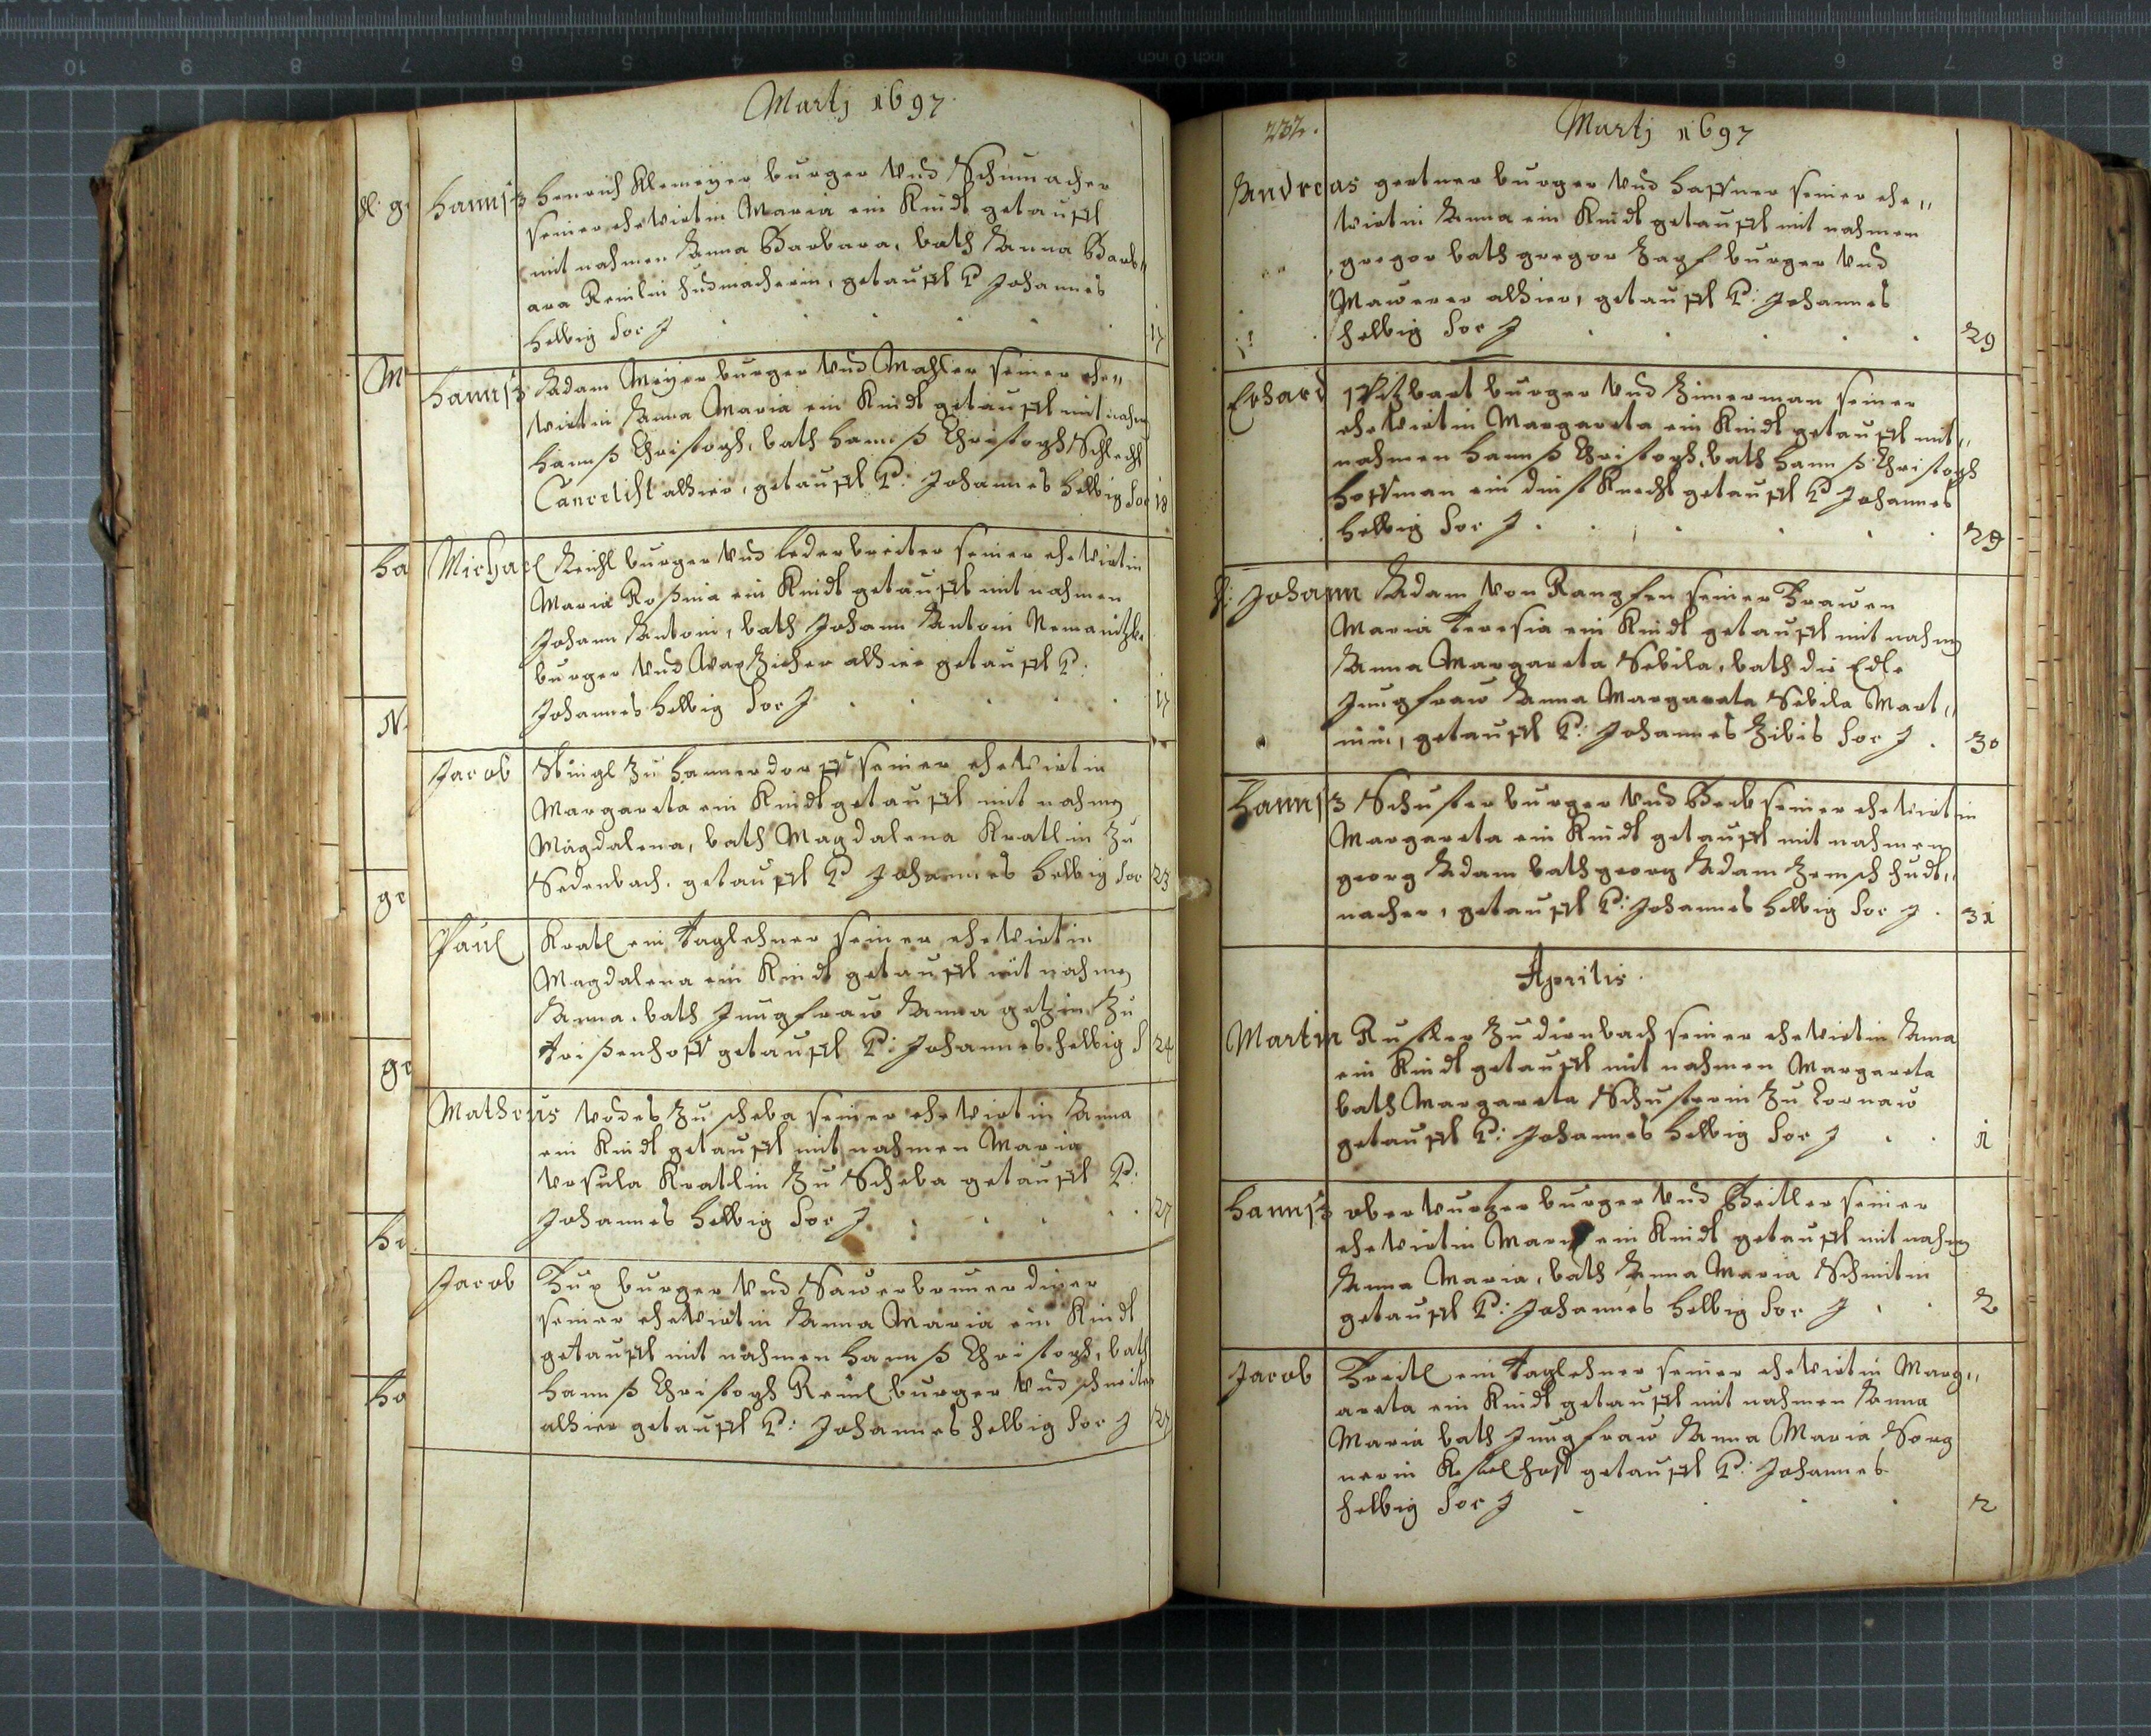 Martj 1697
Hannß Henrich Klemeyer burger vnd Schumacher
seiner ehewirtin Maria ein Kindt getaufft
mit nahmen Anna Barbara, bath Anna Barb„
ara hudmacherin, getaufft P Johannes
Helbig Soc J 17
Hannß Adam Meyer burger vnd Mahler seiner ehe„
wirtin Anna Maria ein Kindt getaufft mit nahm
Hannß Christoph, bath Hannß Christoph Schlecht
Cancelist alhier, getaufft P: Johannes Helbig Soc 18
Michael Reichl burger vnd lederbreiter seiner ehewirtin
Maria Roßina ein Kindt getaufft mit nahmen
Johann Antoni, bath Johann Antoni
burger vnd waxzieher alhier getaufft P:
Johannes Helbig Soc J 17
Jacob Stingl zu seiner ehewirtin
Margareta ein Kindt getaufft mit nahmen
Magdalena, bath Magdalena Kratlin zu
Sedenbach. getaufft P Johannes Helbig Soc 23
Paul Kratl ein taglehner seiner ehewirtin
Magdalena ein Kindt getaufft mit nahmen
Anna. bath Jungfraw Anna getzin zu
getaufft P: Johannes Helbig S 24
Matheus zu scheba seiner ehewirtin Anna
ein Kindt getaufft mit nahmen Maria
Vrsula Kratlin zu Scheba getaufft P:
Johannes Helbig Soc J. 27
Jacob Fux burger vnd Sawerbrunerdiner
seiner ehewirtin Anna Maria ein Kindt
getaufft mit nahmen Hannß Christoph, bath
Hannß Christoph burger vnd schneiter
alhier getaufft P: Johannes Helbig Soc J 27
232.
Martj 1697
Andreas gertner burger vnd Haffner seiner ehe„
wirtin Anna ein Kindt getaufft mit nahmen
gregor bath gregor Zapf burger vnd
Mawerer alhier, getaufft P: Johannes
Helbig Soc J 29
Erhard Spitzbart burger vnd Zimerman seiner
ehewirtin Margareta ein Kindt getaufft mit„
nahmen Hannß Christoph, bath Hannß Christoph
Hoffman ein dinstknecht getaufft P Johannes
Helbig Soc J. 29
H: Johann Adam von seiner Frawen
Maria Teresia ein Kindt getaufft mit nahmen
Anna Margareta Sebila, bath die Edle
Jungfraw Anna Margareta Sebila Mert„
nin, getaufft P: Johannes Zibis Soc J. 30
Hannß Schuster burger vnd Beck seiner ehewirtin
Margareta ein Kindt getaufft mit nahmen
georg Adam bath georg Adam hudt„
macher, getaufft P: Johannes Helbig Soc J. 31
Aprilis.
Martin zu dirnbach seiner ehewirtin Anna
ein Kindt getaufft mit nahmen Margareta
bath Margareta Schusterin zu Cornaw
getaufft P: Johannes Helbig Soc J 1
Hannß burger vnd Beitler seiner
ehewirtin Maria ein Kindt getaufft mit nahmen
Anna Maria, bath Anna Maria Schmitin
getaufft P: Johannes Helbig Soc J 2
Jacob ein taglehner seiner ehewirtin Marg„
areta ein Kindt getaufft mit nahmen Anna
Maria bath Jungfraw Anna Maria Sorg
nerin getaufft P: Johannes
Helbig Soc J 2